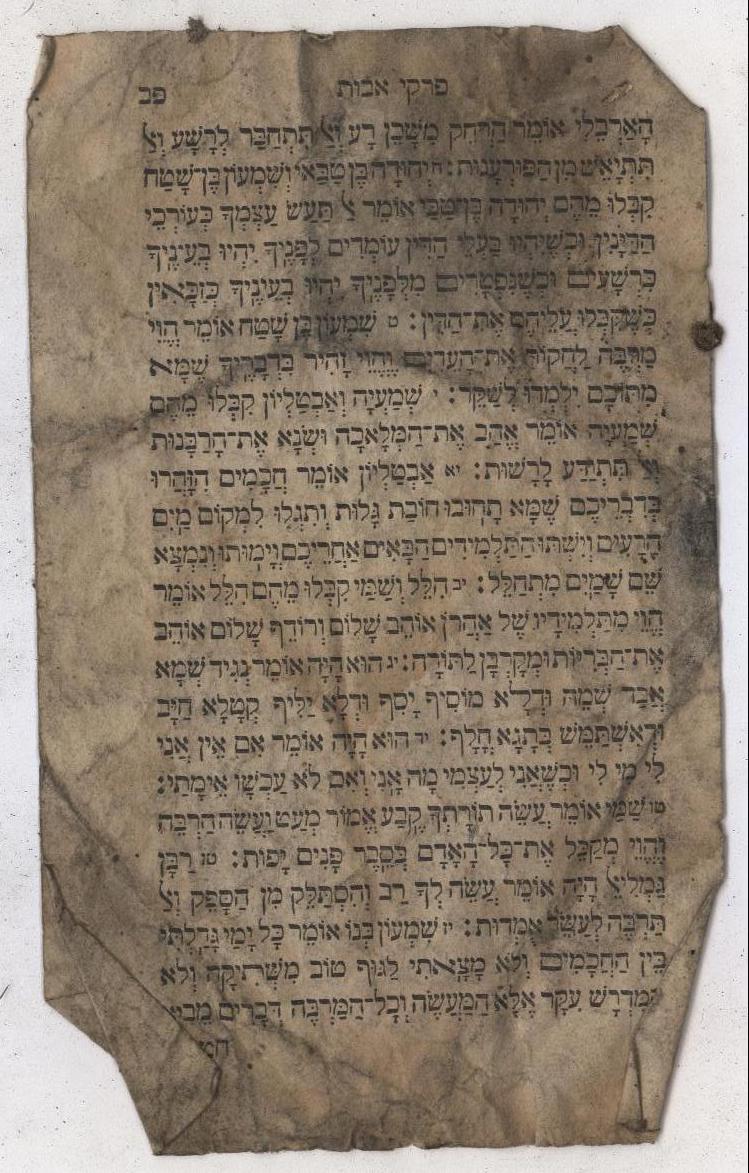 פרקי אבות פב
הָאַרְבֵּלִי אוֹמֵר הַרְחֵק מִשָּׁכֵן רָע וְאַל תִּתְחַבֵּר לָרָשָׁע וְאַל
תִּתְיָאֵשׁ מִן הַפּוּרְעָנוּת: ח יְהוּדָה בֶּן טַבָּאי וְשִׁמְעוֹן בֶּן־שָׁטַח
קִבְּלוּ מֵהֶם יְהוּדָה בֶּן־טַבַּי אוֹמֵר אַל תַּעַשׂ עַצְמְךָ כְּעוֹרְכֵי
הַדַּיָּנִין וּכְשֶׁיִּהְיוּ בַּעֲלֵי הַדִּין עוֹמְדִים לְפָנֶיךָ יִהְיוּ בְעֵינֶיךָ
כִּרְשָׁעִים וּכְשֶׁנִּפְטָרִים מִלְּפָנֶיךָ יִהְיוּ בְעֵינֶיךָ כְּזַכָּאִין
כְּשֶׁקִּבְּלוּ עֲלֵיהֶם אֶת־הַדִּין: ט שִׁמְעוֹן בֶּן שָׁטַח אוֹמֵר הֱוֵי
מַרְבֶּה לַחְקוֹר אֶת־הָעֵדִים וֶהֱוֵי זָהִיר בִּדְבָרֶיךָ שֶׁמָּא
מִתּוֹכָם יִלְמְדוּ לְשַׁקֵּר: י שְׁמַעְיָה וְאַבְטַלְיוֹן קִבְּלוּ מֵהֶם
שְׁמַעְיָה אוֹמֵר אֱהַב אֶת־הַמְּלָאכָה וּשְׂנָא אֶת־הָרַבָּנוּת
וְאַל תִּתְוַדַּע לָרָשׁוּת: יא אַבְטַלְיוֹן אוֹמֵר חֲכָמִים הִזָּהֲרוּ
בְּדִבְרֵיכֶם שֶׁמָּא תָחוּבוּ חוֹבַת גָּלוּת וְתִגְלוּ לִמְקוֹם מַיִם
הָרָעִים וְיִשְׁתּוּ הַתַּלְמִידִים הַבָּאִים אַחֲרֵיכֶם וְיָמוּתוּ וְנִמְצָא
שֵׁם שָׁמַיִם מִתְחַלֵּל: יב הִלֵּל וְשַׁמַּי קִבְּלוּ מֵהֶם הִלֵּל אוֹמֵר
הֱוֵי מִתַּלְמִידָיו שֶׁל אַהֲרֹן אוֹהֵב שָׁלוֹם וְרוֹדֵף שָׁלוֹם אוֹהֵב
אֶת־הַבְּרִיּוֹת וּמְקָרְבָן לַתּוֹרָה: יג הוּא הָיָה אוֹמֵר נְגִיד שְׁמָא
אֲבַד שְׁמֵהּ וּדְלָא מוֹסִיף יָסֵף וּדְלָא יַלִּיף קְטָלָא חַיָּב
וּדְאִשְׁתַּמֵּשׁ בְּתָגָא חֲלָף: יד הוּא הָיָה אוֹמֵר אִם אֵין אֲנִי
לִי מִי לִי וּכְשֶׁאֲנִי לְעַצְמִי מָה אֲנִי וְאִם לֹא עַכְשָׁו אֵימָתַי:
טו שַׁמַּי אוֹמֵר עֲשֵׂה תוֹרָתְךָ קֶבַע אֱמוֹר מְעַט וַעֲשֵׂה הַרְבֵּה
וֶהֱוֵי מְקַבֵּל אֶת־כָּל־הָאָדָם בְּסֵבֶר פָּנִים יָפוֹת: טז רַבָּן
גַּמְלִיאֵל הָיָה אוֹמֵר עֲשֵׂה לְךָ רַב וְהִסְתַּלֵּק מִן הַסָּפֵק וְאַל
תַּרְבֶּה לְעַשֵּׂר אֻמְדוּת: יז שִׁמְעוֹן בְּנוֹ אוֹמֵר כָּל יָמַי גָּדַלְתִּי
בֵּין הַחֲכָמִים וְלֹא מָצָאתִי לַגּוּף טוֹב מִשְּׁתִיקָה וְלֹא
הַמִּדְרָשׁ עִקָּר אֶלָּא הַמַּעֲשֶׂה וְכָל־הַמַּרְבֶּה דְבָרִים מֵבִיא